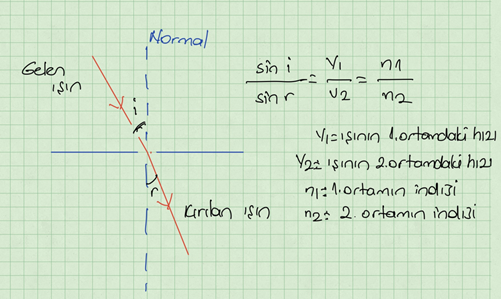 Normal
Gelen
ışın
i
r
Kırılan ışın
sin i / sin r = V1 / V2 = n1 / n2
V1 = ışının 1. ortamdaki hızı
V2 = ışının 2. ortamdaki hızı
n1 = 1. ortamın indisi
n2 = 2. ortamın indisi